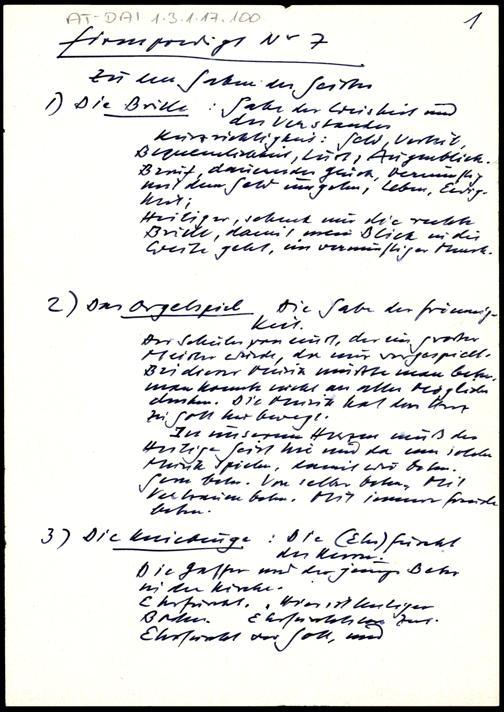 AT-DAI 1.3.1.17.100
1
Firmpredigt Nr 7
Zu den Gaben des Geistes
1) Die Brille : Gabe der Weisheit und
des Verstandes
Kurzsichtigkeit: Geld, Vorteil,
Bequemlichkeit, Lust, Augenblick.
Beruf, dauerndes Glück, vernünftig
mit dem Geld umgehen, Leben, Ewig-
keit;
Heiliger, schenk mir die rechte
Brille, damit mein Blick in die
Weite geht, ein vernünftiger Mensch.
2) Das Orgelspiel Die Gabe der Frömmig-
keit.
Der Schüler von einst, der ein großer
Meister wurde, da mir vorgespielt.
Bei dieser Musik mußte man beten.
man konnte nicht an alles Mögliche
denken. Die Musik hat das Herz
zu Gott hin bewegt.
In unserem Herzen muß der
Heilige Geist hie und da eine solche
Musik spielen, damit wir beten.
Gern beten. Von selber beten, Mit
Vertrauen beten. Mit innerer Freude
beten.
3) Die Kniebeuge : Die (Ehr)furcht
des Herrn.
Die Gaffer und der junge Beter
in der Kirche.
Ehrfurcht. „Hier ist heiliger
Boden. Ehrfurchtslose Zeit.
Ehrfurcht vor Gott, und